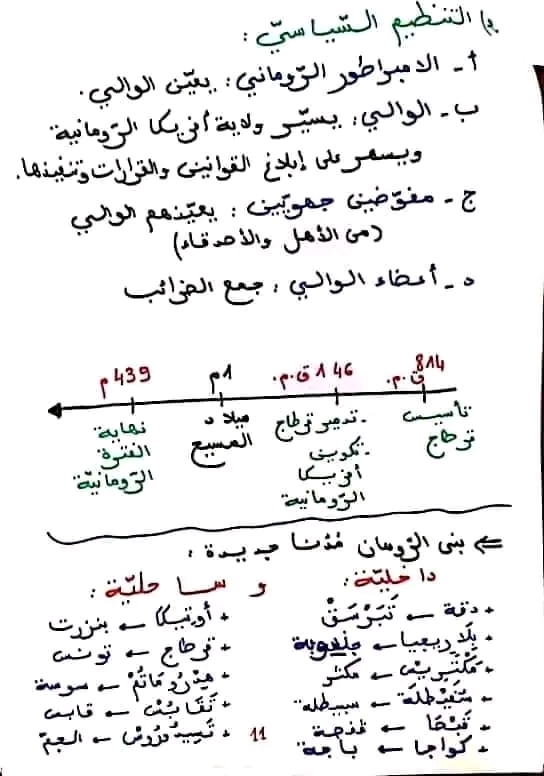 د) التنظيم السّياسيّ :
أ - الامبراطور الرّوماني : يعيّن الوالي.
ب - الوالي : يسيّر ولاية أفريكا الرّومانية
ويسهر على إبلاغ القوانين والقرارات وتنفيذها.
ج - مفوّضين جهويّين : يعيّنهم الوالي
(من الأهل والأصدقاء)
د - أعضاء الوالي : جمع الضرائب
814 ق.م. 146 ق.م. 1م 439م
تأسيس قرطاج
- تدمير قرطاج
- تكوين أفريكا الرّومانية
ميلاد المسيح
نهاية الفترة الرّومانيّة
⇐ بنى الرّومان مُدُنا جديدة :
داخليّة : و ساحليّة :
• دقة ← تَبَرْسُقْ • أوتيكا ← بنزرت
• بلّاريجيا ← جندوبة • قرطاج ← تونس
• مَكْتَريس ← مكثر • هدرُوماتُمْ ← سوسة
• سُفَيْطلة ← سبيطلة • تَكَابُسْ ← قابس
• قبْصَا ← قفصة • تَيسِدْرُوسْ ← الجمّ
• ← باجة
11